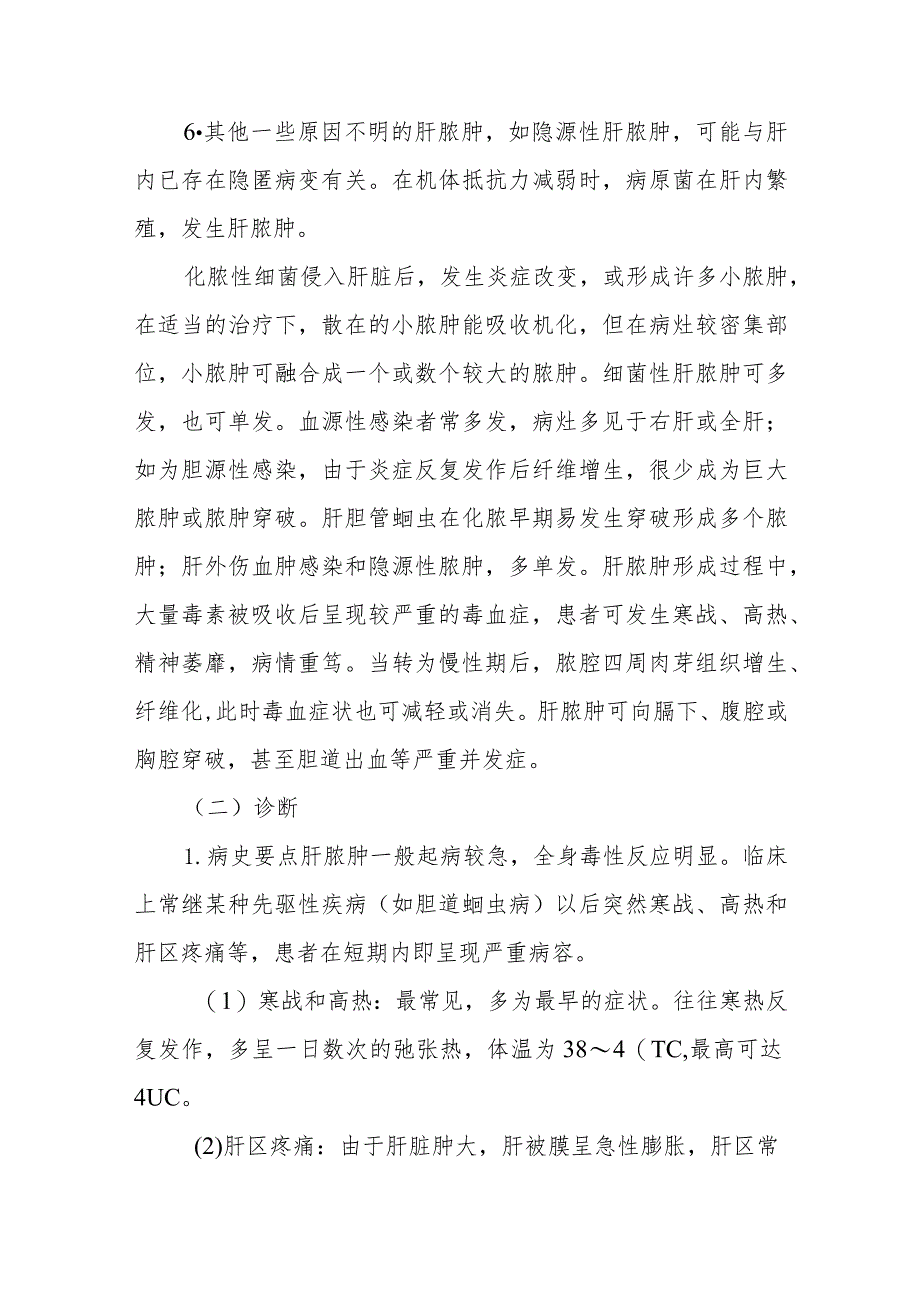 6•其他一些原因不明的肝脓肿，如隐源性肝脓肿，可能与肝
内已存在隐匿病变有关。在机体抵抗力减弱时，病原菌在肝内繁
殖，发生肝脓肿。
化脓性细菌侵入肝脏后，发生炎症改变，或形成许多小脓肿，
在适当的治疗下，散在的小脓肿能吸收机化，但在病灶较密集部
位，小脓肿可融合成一个或数个较大的脓肿。细菌性肝脓肿可多
发，也可单发。血源性感染者常多发，病灶多见于右肝或全肝；
如为胆源性感染，由于炎症反复发作后纤维增生，很少成为巨大
脓肿或脓肿穿破。肝胆管蛔虫在化脓早期易发生穿破形成多个脓
肿；肝外伤血肿感染和隐源性脓肿，多单发。肝脓肿形成过程中，
大量毒素被吸收后呈现较严重的毒血症，患者可发生寒战、高热、
精神萎靡，病情重笃。当转为慢性期后，脓腔四周肉芽组织增生、
纤维化,此时毒血症状也可减轻或消失。肝脓肿可向膈下、腹腔或
胸腔穿破，甚至胆道出血等严重并发症。
（二）诊断
1. 病史要点肝脓肿一般起病较急，全身毒性反应明显。临床
上常继某种先驱性疾病（如胆道蛔虫病）以后突然寒战、高热和
肝区疼痛等，患者在短期内即呈现严重病容。
（1）寒战和高热：最常见，多为最早的症状。往往寒热反
复发作，多呈一日数次的弛张热，体温为 38～4（TC,最高可达
4UC。
(2)肝区疼痛：由于肝脏肿大，肝被膜呈急性膨胀，肝区常